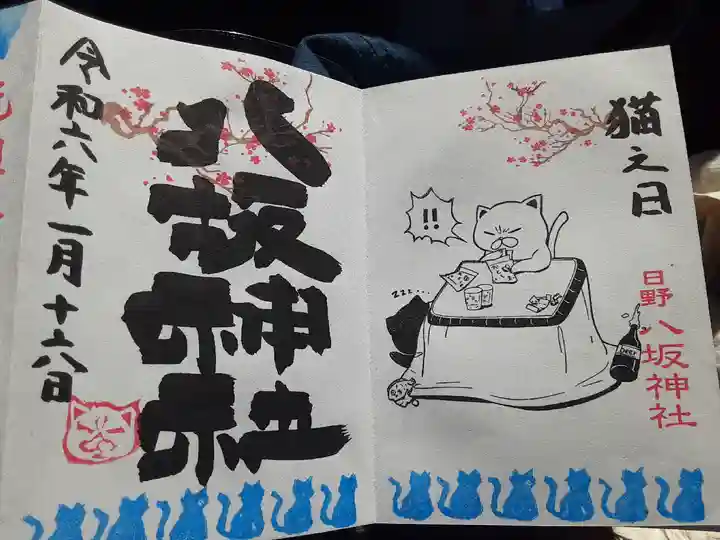 猫之日
日野八坂神社
!!
zzz...
Beer
八坂神社
令和六年一月十六日